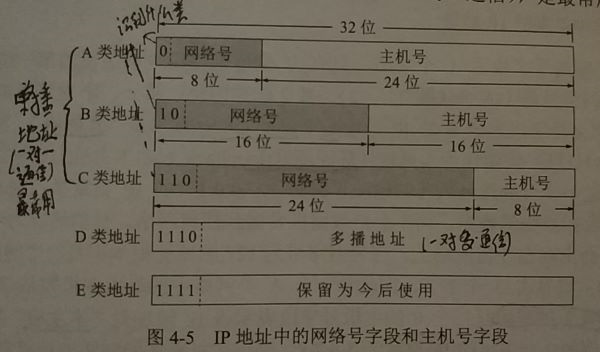 32 位
A 类地址 0 网络号 主机号
8 位 24 位
B 类地址 10 网络号 主机号
16 位 16 位
C 类地址 110 网络号 主机号
24 位 8 位
D 类地址 1110 多播地址 (一对多通信)
E 类地址 1111 保留为今后使用
单播
地址
(一对一
通信)
最常用
图 4-5 IP 地址中的网络号字段和主机号字段